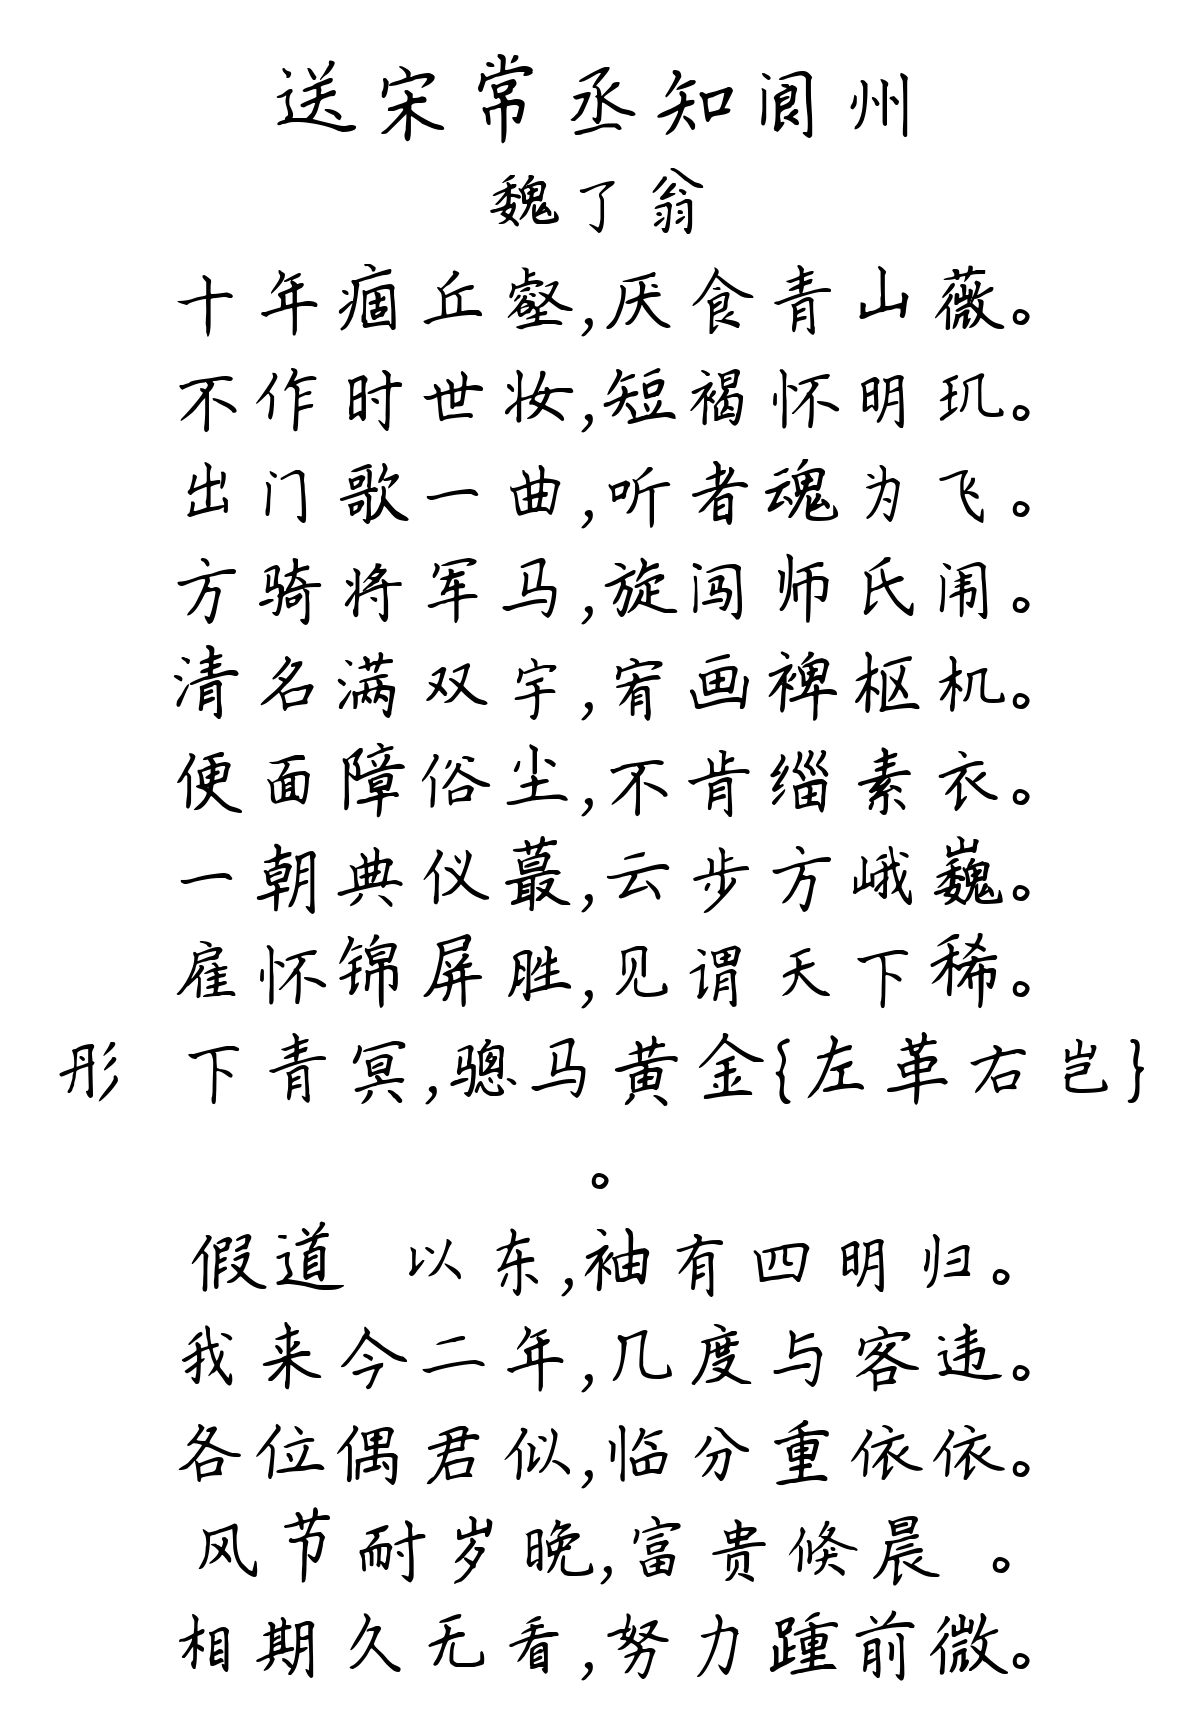 送宋常丞知阆州
魏了翁
十年痼丘壑,厌食青山薇。
不作时世妆,短褐怀明玑。
出门歌一曲,听者魂为飞。
方骑将军马,旋闯师氏闱。
清名满双宇,宥画裨枢机。
便面障俗尘,不肯缁素衣。
一朝典仪蕞,云步方峨巍。
雇怀锦屏胜,见谓天下稀。
彤 下青冥,骢马黄金{左革右岂}
。
假道 以东,袖有四明归。
我来今二年,几度与客违。
各位偶君似,临分重依依。
风节耐岁晚,富贵倏晨 。
相期久无看,努力踵前微。